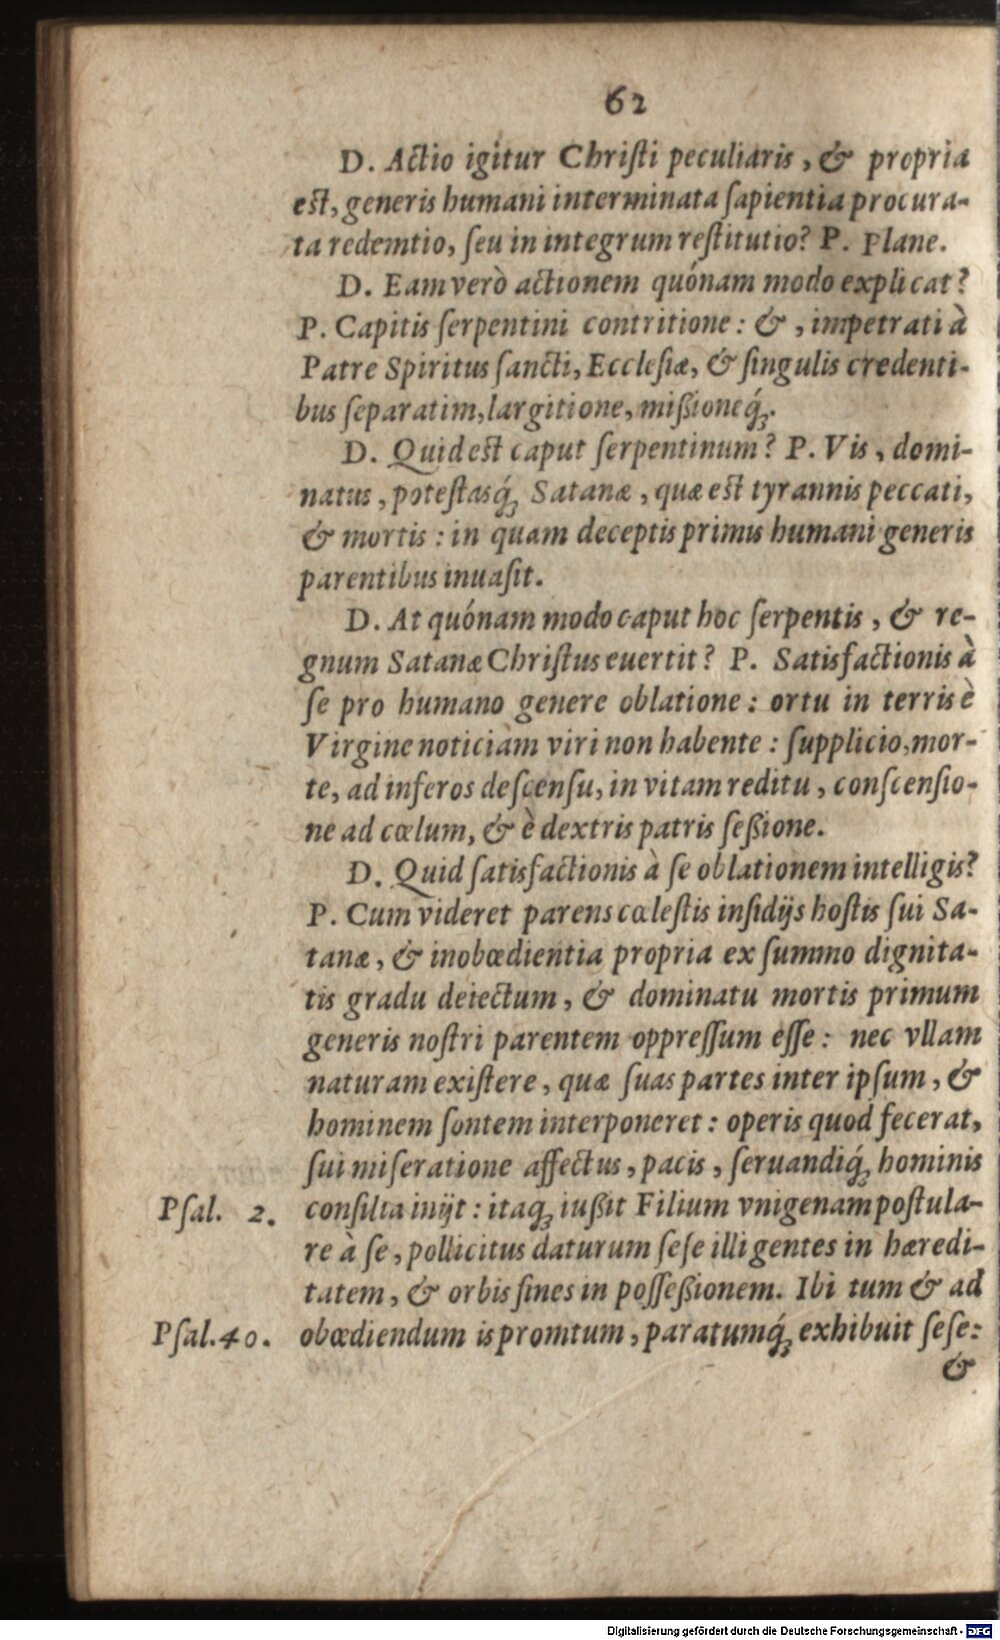 62
D. Actio igitur Chriſti peculiaris, & propria
est, generis humani interminata ſapientia procura-
ta redemtio, ſeu in integrum reſtitutio? P. Plane.
D. Eam verò actionem quónam modo explicat?
P. Capitis ſerpentini contritione: &, impetrati à
Patre Spiritus ſancti, Eccleſiæ, & ſingulis credenti-
bus ſeparatim, largitione, mißioneq́;.
D. Quid est caput ſerpentinum? P. Vis, domi-
natus, poteſtasq́; Satanæ, quæ est tyrannis peccati,
& mortis: in quam deceptis primis humani generis
parentibus inuaſit.
D. At quónam modo caput hoc ſerpentis, & re-
gnum Satanæ Chriſtus euertit? P. Satisfactionis à
ſe pro humano genere oblatione: ortu in terris è
Virgine noticiam viri non habente: ſupplicio, mor-
te, ad inferos deſcenſu, in vitam reditu, conſcenſio-
ne ad cœlum, & è dextris patris ſeßione.
D. Quid ſatisfactionis à ſe oblationem intelligis?
P. Cum videret parens cœleſtis inſidijs hoſtis ſui Sa-
tanæ, & inobœdientia propria ex ſummo dignita-
tis gradu deiectum, & dominatu mortis primum
generis noſtri parentem oppreſſum eſſe: nec vllam
naturam exiſtere, quæ ſuas partes inter ipſum, &
hominem ſontem interponeret: operis quod fecerat,
ſui miſeratione affectus, pacis, ſeruandiq́; hominis
Pſal. 2. conſilia inijt: itaq; iußit Filium vnigenam poſtula-
re à ſe, pollicitus daturum ſeſe illi gentes in hæredi-
tatem, & orbis fines in poſſeßionem. Ibi tum & ad
Pſal. 40. obœdiendum is promtum, paratumq́; exhibuit ſeſe:
&
Digitalisierung gefördert durch die Deutsche Forschungsgemeinschaft - DFG